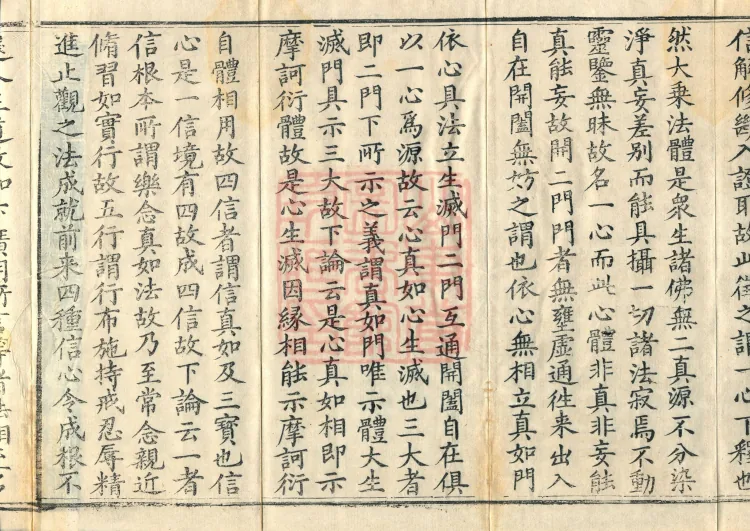 信解修幾入證耶故此徴之謂一心下釋也
然大乗法體是衆生諸佛無二真源不分染
淨真妄差別而能具攝一切諸法寂焉不動
靈鑒無昧故名一心而此心體非真非妄能
真能妄故開二門門者無壅虛通徃来出入
自在開闔無妨之謂也依心無相立真如門
依心具法立生滅門二門互通開闔自在俱
以一心爲源故云心真如心生滅也三大者
即二門下所示之義謂真如門唯示體大生
滅門具示三大故下論云是心真如相即示
摩訶衍體故是心生滅因縁相能示摩訶衍
自體相用故四信者謂信真如及三寶也信
心是一信境有四故成四信故下論云一者
信根本所謂樂念真如法故乃至常念親近
脩習如實行故五行謂行布施持戒忍辱精
進止觀之法成就前来四種信心令成根不